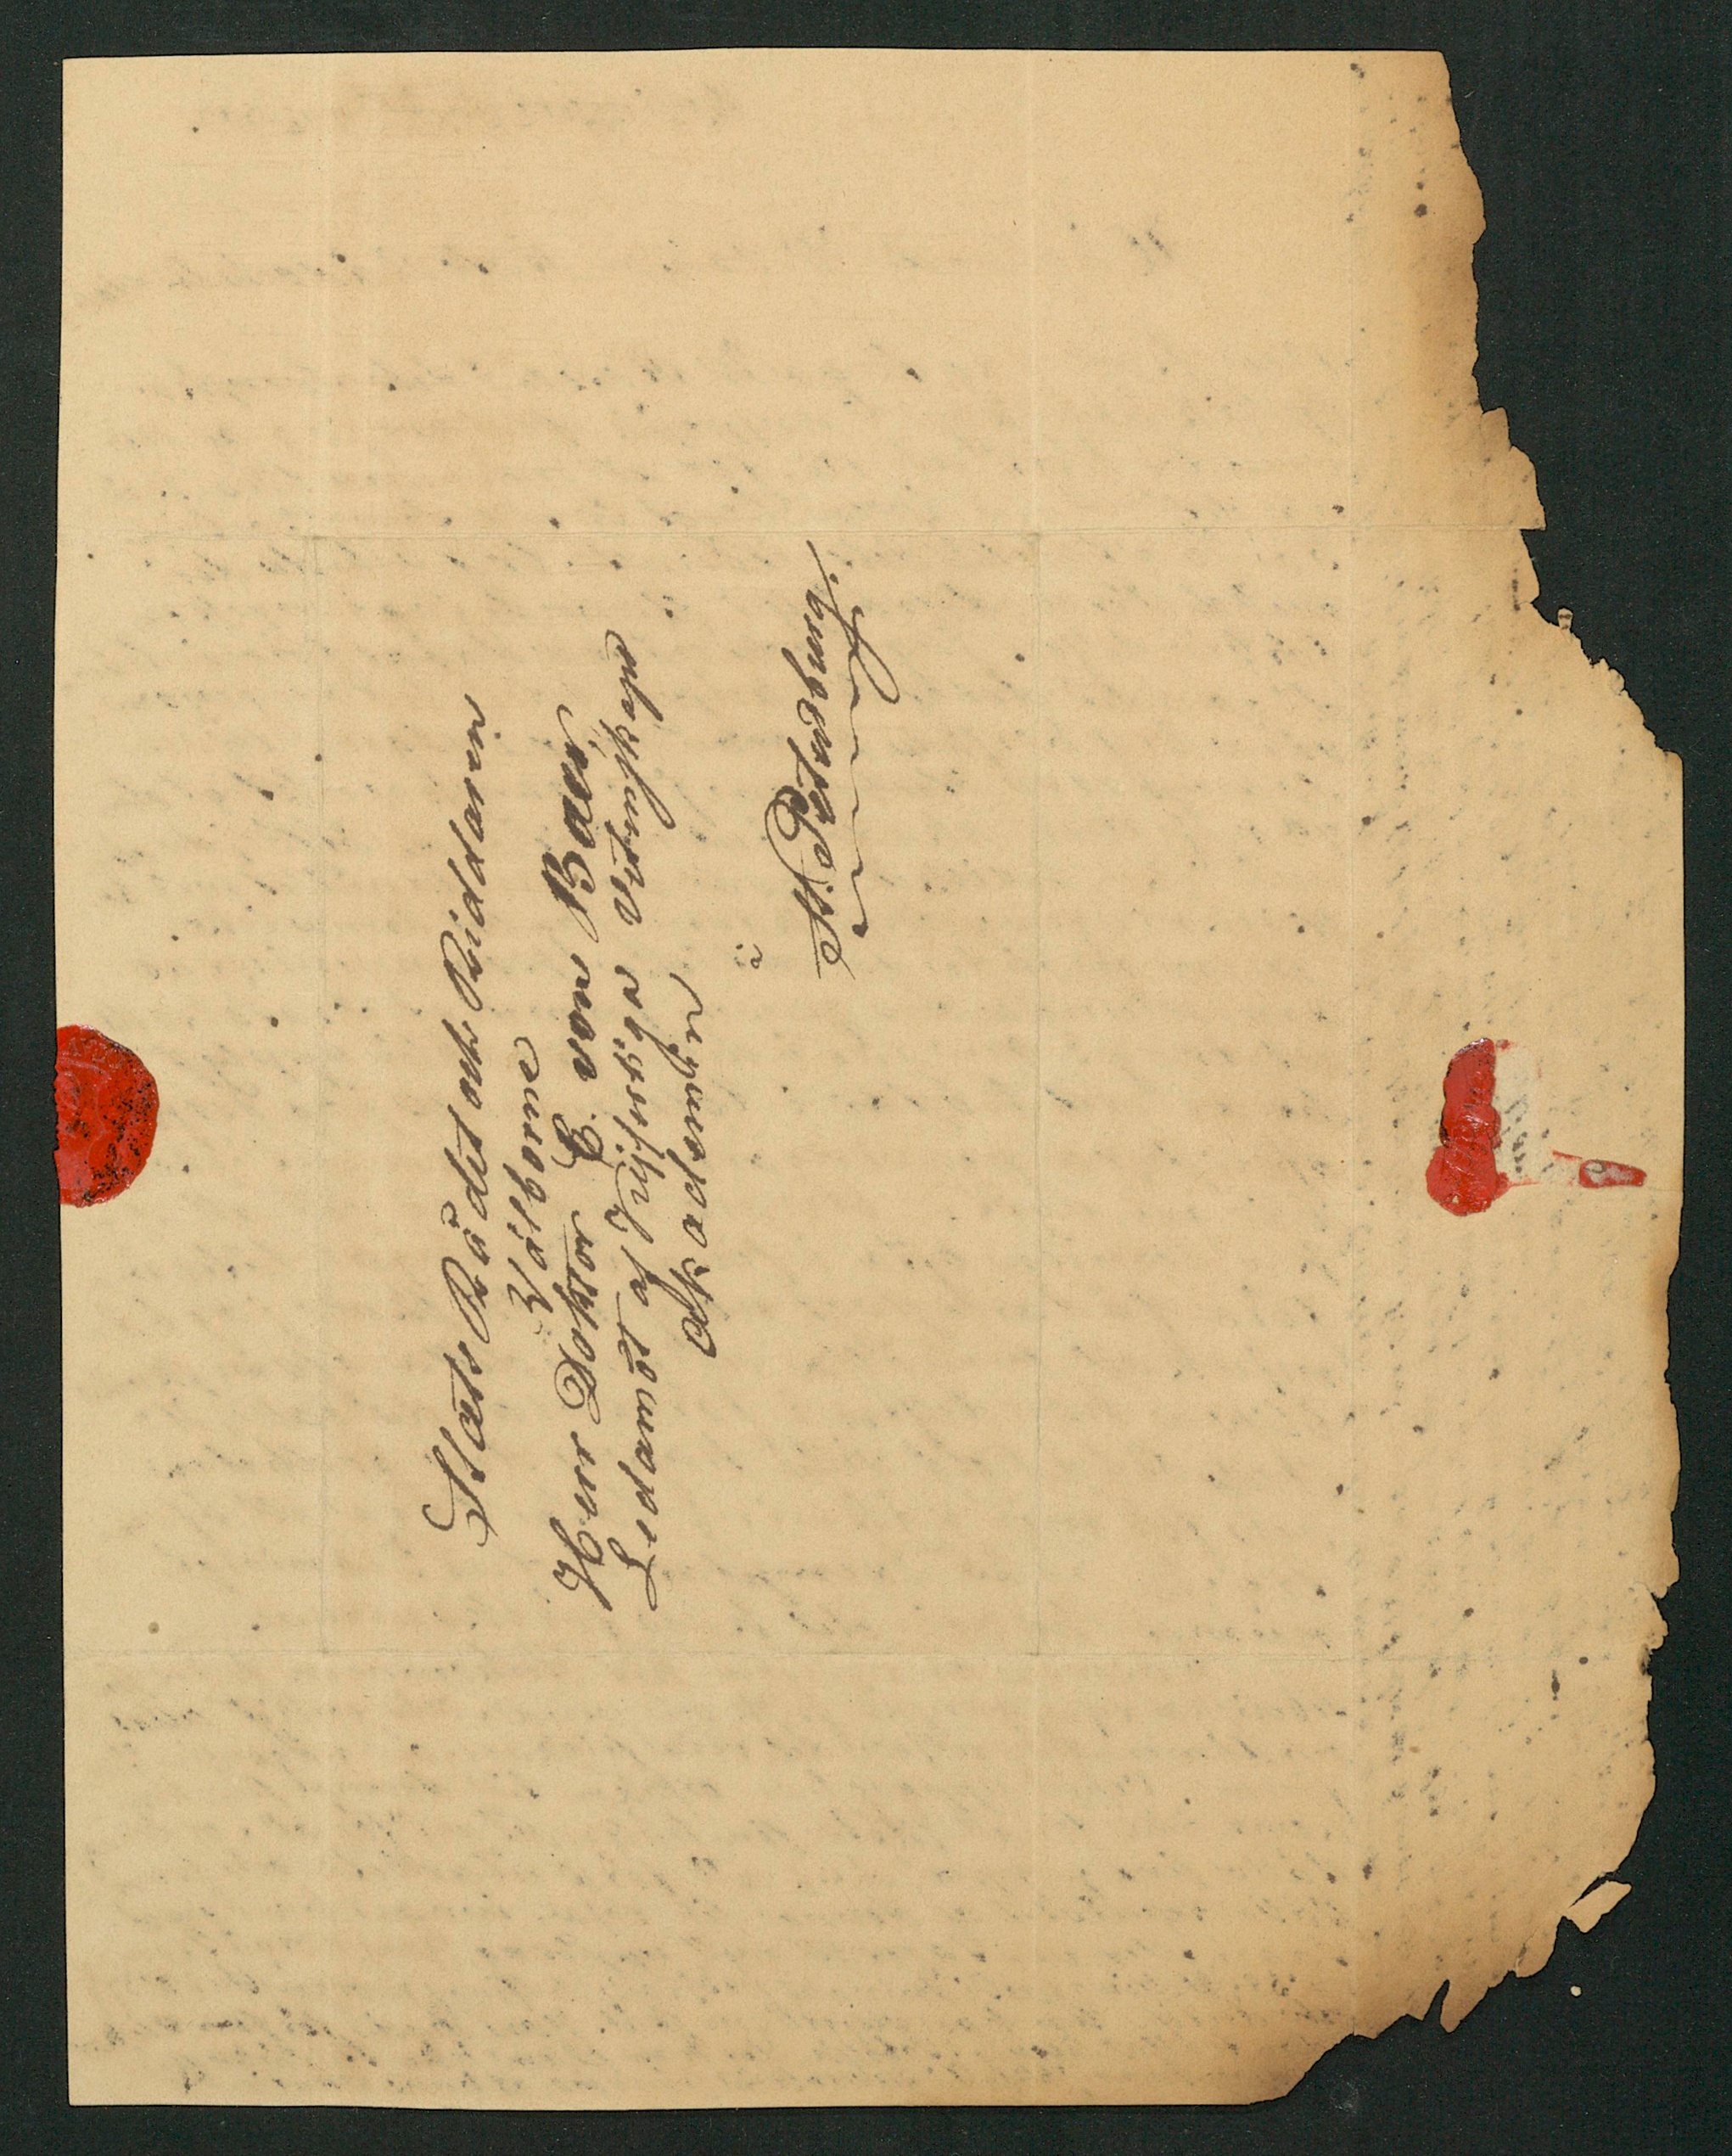 Stats Rådet och Riddaren
Välborne
Herr Doktor E. von Baer,
Ledamot af Kejserliga vetenskaps
Akademien
i
St Petersburg.